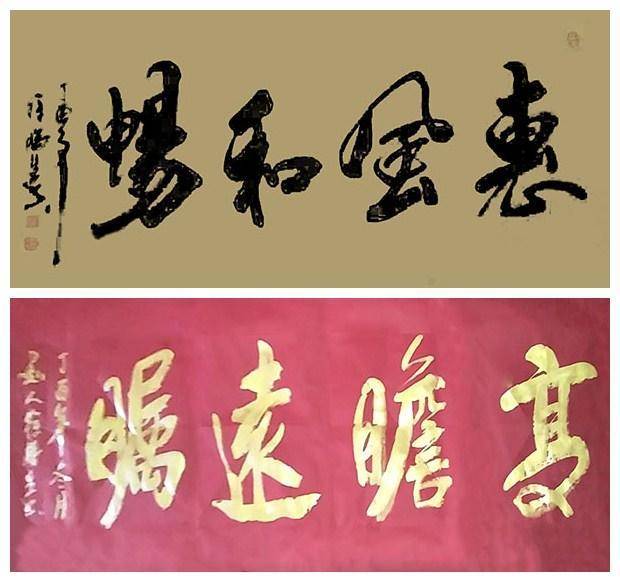 惠風和暢
丁酉
高瞻遠矚
丁酉年冬月